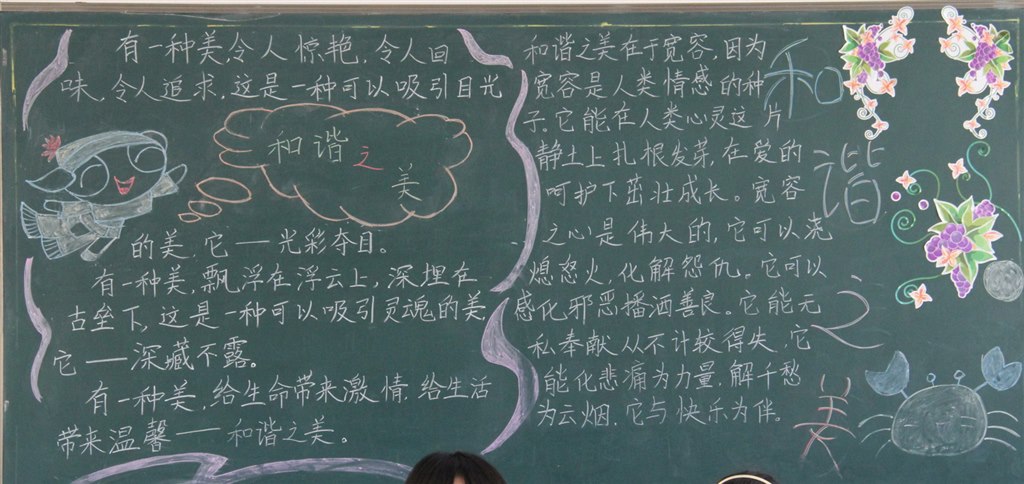 有一种美,令人惊艳,令人回
味,令人追求,这是一种可以吸引目光
和谐之美
的美,它——光彩夺目。
有一种美,飘浮在浮云上,深埋在
古垒下,这是一种可以吸引灵魂的美
它——深藏不露。
有一种美,给生命带来激情,给生活
带来温馨——和谐之美。
和谐之美在于宽容,因为
宽容是人类情感的种
子,它能在人类心灵这片
静土上扎根发芽,在爱的
呵护下茁壮成长。宽容
之心是伟大的,它可以浇
熄怒火,化解怨仇。它可以
感化邪恶播洒善良。它能无
私奉献从不计较得失,它
能化悲痛为力量,解千愁
为云烟,它与快乐为伴。
和谐之美